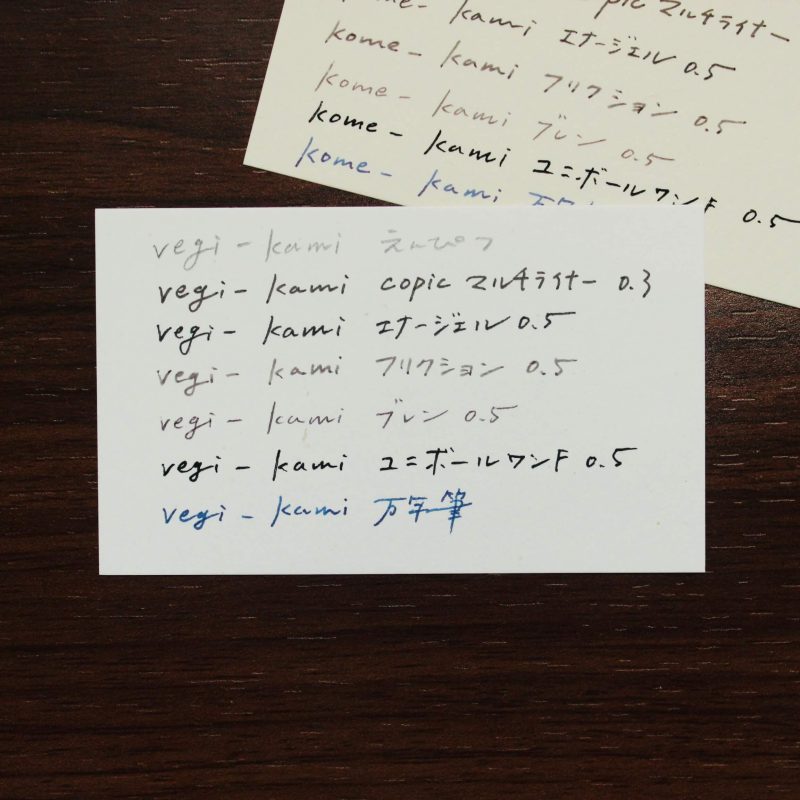 kome- kami copic マルチライナー
kome- kami エナージェル 0.5
kome- kami フリクション 0.5
kome- kami ブレン 0.5
kome- kami ユニボールワンF 0.5
kome- kami
vegi- kami えんぴつ
vegi- kami copic マルチライナー 0.3
vegi- kami エナージェル 0.5
vegi- kami フリクション 0.5
vegi- kami ブレン 0.5
vegi- kami ユニボールワンF 0.5
vegi- kami 万年筆